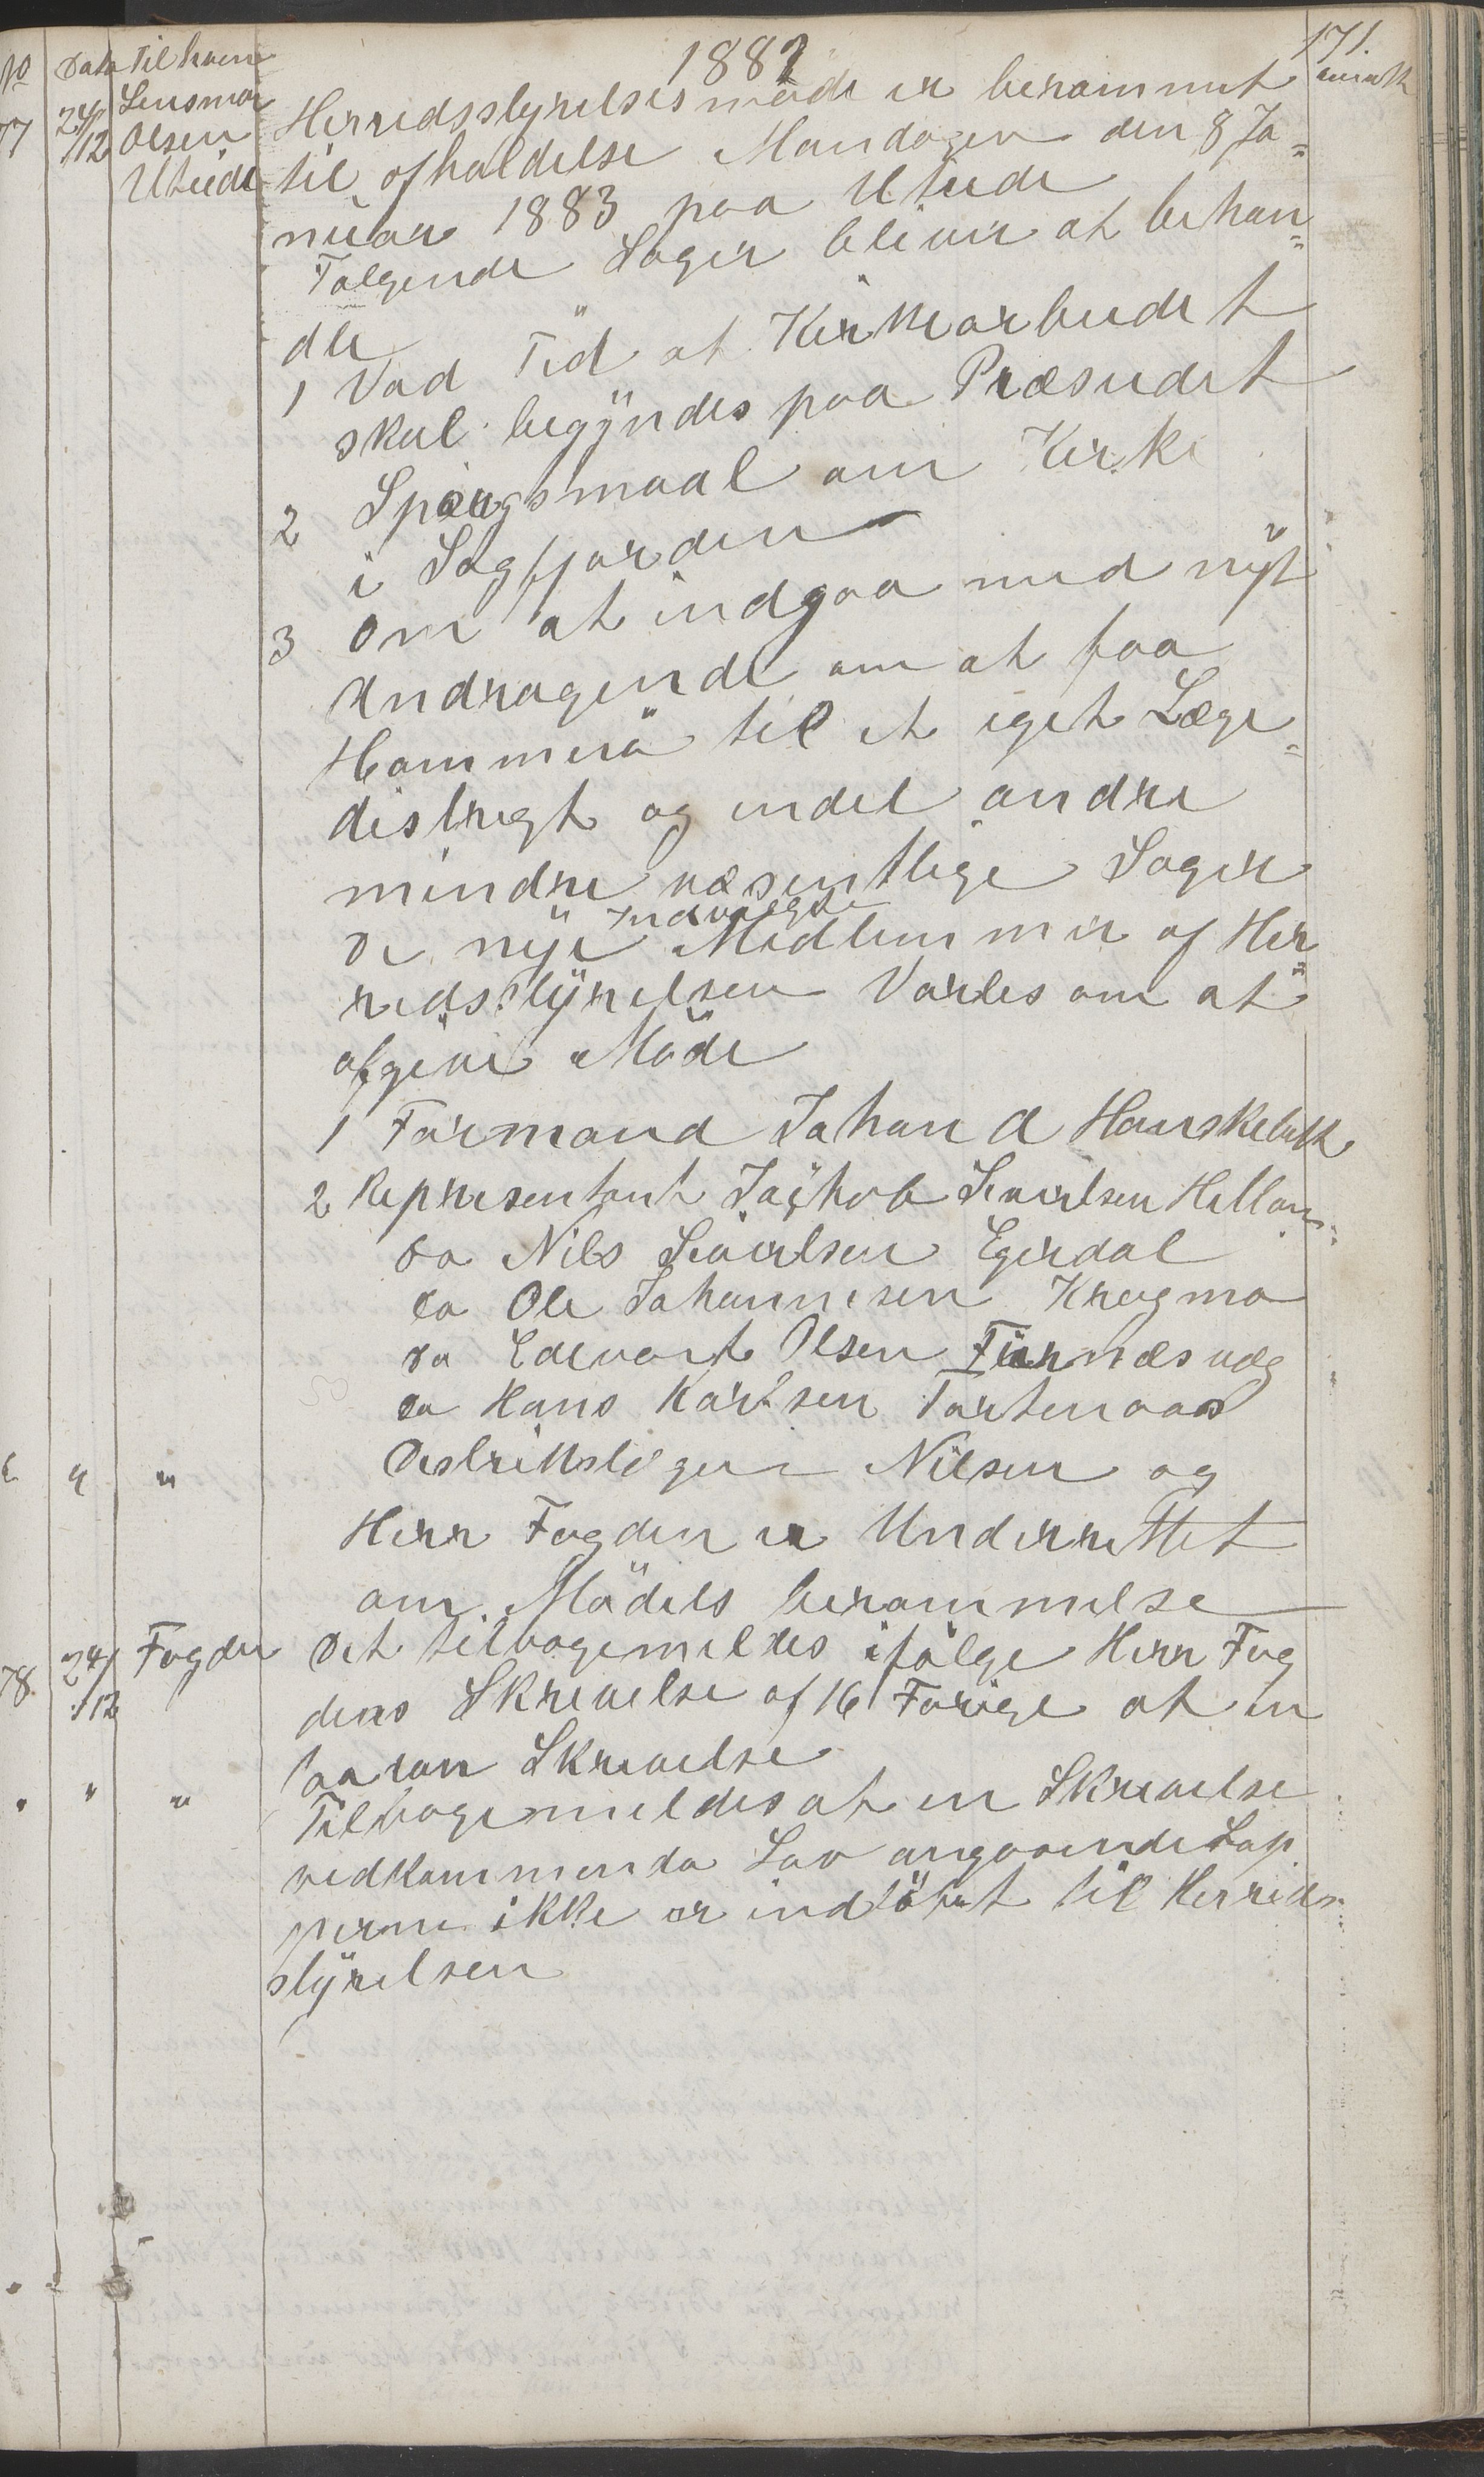 1882
171.
No Dato Til hvem
anmk
77 24/12 Lensman Olsen Uteide
Herredsstyrelsesmøde er berammet
til afholdelse Mandagen den 8 Ja=
nuar 1883 paa Uteide
Følgende Sager bliver at behan=
dle
1 Vad Tid at Kirkearbeidet
skal begÿndes paa Præseidet
2 Spørgsmaal om Kirke
i Sagfjorden
3 Om at indgaa med nÿt
Andragende om at faa
Hammerö til et eget Læge=
distregt og endel andre
mindre væsentlige Sager
De nÿe Indvalgte Medlemmer af Her=
redsstÿrelsen Varles om at
afgive Möde
1 Formand Johan A Hanskebakk
2 Representant Jakob Sivertsen Helland
Do Nils Sivertsen Egerdal
Do Ole Johannesen Kragmo
Do Edevart Olsen Furnæsvæg
Do Hans Karlsen Tortenaas
" " "
Distriktslægen Nilsen og
Herr Fogden er Underrettet
om Mödets berammelse
78. 24/12 Fogden
Det tilbagemeldes ifölge Herr Fog
dens Skrevelse af 16 Forige at en
saavan Skrevelse
" " "
Tilbagemeldes at en Skrevelse
vedkommenda Lov angaaende Lap
perne ikke er indlöbet til Herreds
stÿrelsen